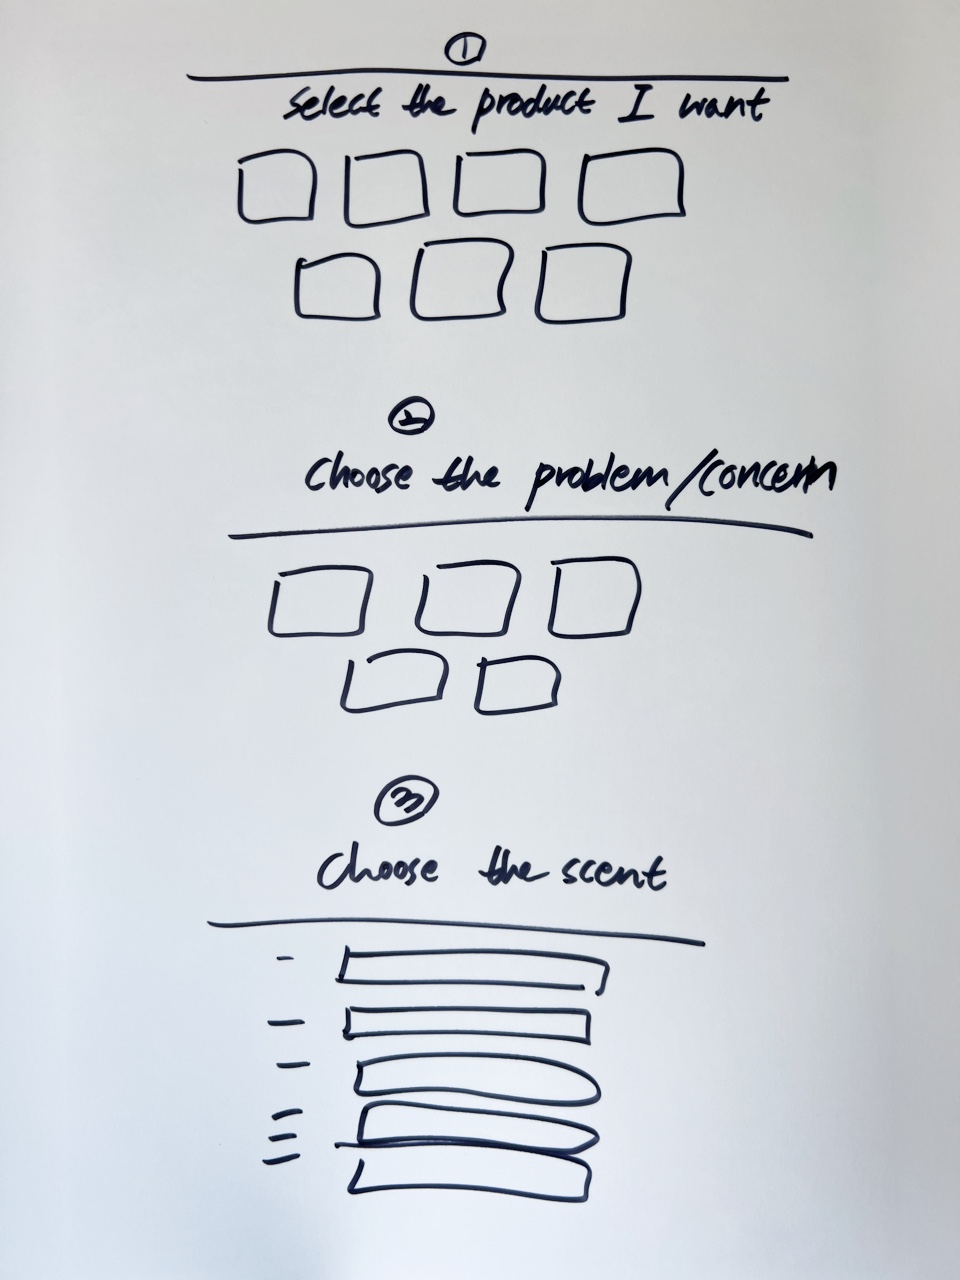 ①
Select the product I want
②
Choose the problem/concern
③
Choose the scent